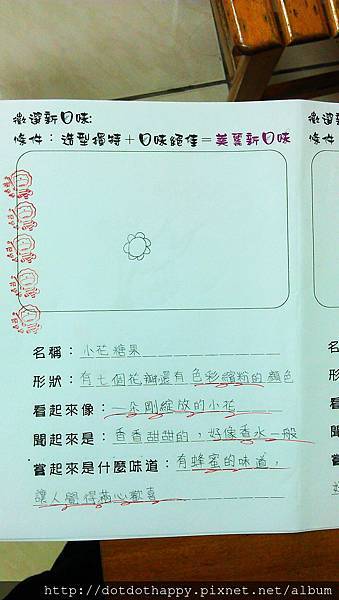 徵選新口味:
條件：造型獨特＋口味絕佳＝英翼新口味
名稱：小花糖果
形狀：有七個花瓣還有色彩繽紛的顏色
看起來像：一朵剛綻放的小花
聞起來是：香香甜甜的，好像香水一般
嘗起來是什麼味道：有蜂蜜的味道，
讓人覺得滿心歡喜
徵選新
條件
名
形
看
聞
嘗
http://dotdothappy.pixnet.net/album